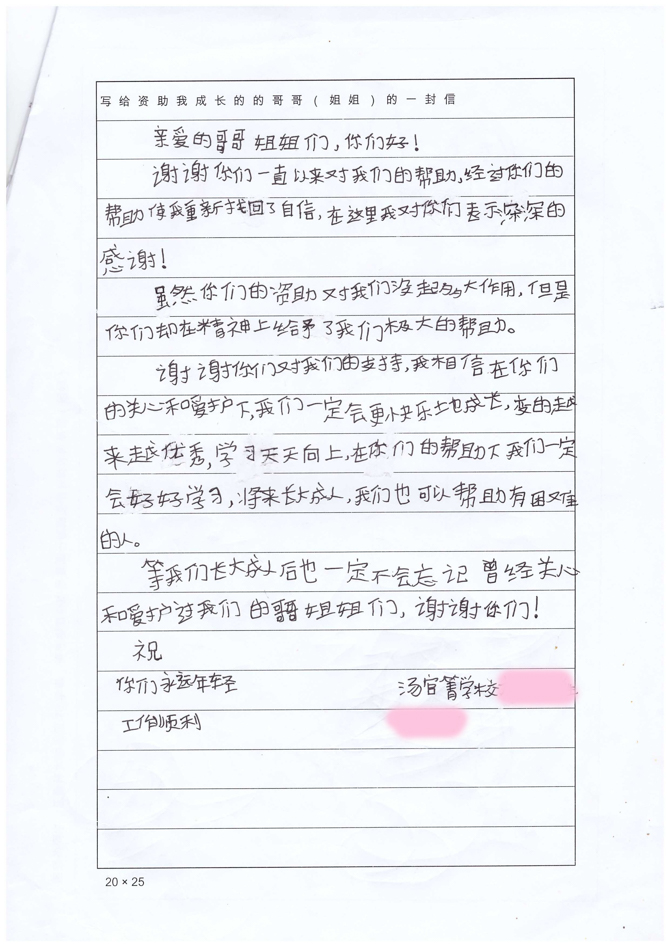 写给资助我成长的的哥哥(姐姐)的一封信
亲爱的哥哥姐姐们,你们好!
谢谢你们一直以来对我们的帮助,经过你们的
帮助使我重新找回了自信,在这里我对你们表示深深的
感谢!
虽然你们的资助对我们没起多大作用,但是
你们却在精神上给予了我们极大的帮助。
谢谢你们对我们的支持,我相信在你们
的关心和爱护下,我们一定会更快乐地成长,变的越
来越优秀,学习天天向上,在你们的帮助下我们一定
会好好学习,将来长大成人,我们也可以帮助有困难
的人。
等我们长大成人后也一定不会忘记曾经关心
和爱护过我们的哥哥姐姐们,谢谢你们!
祝
你们永远年轻
汤官箐学校
工作顺利
20×25